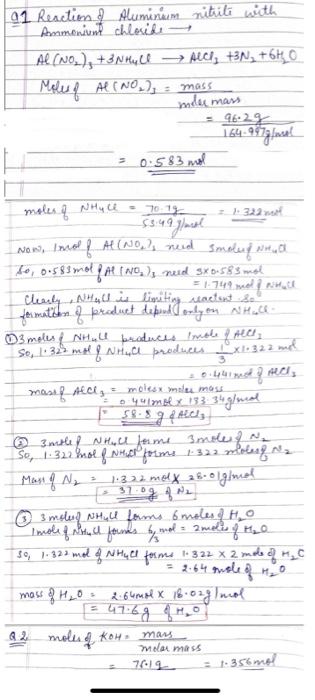 Q1 Reaction of Aluminium nitrite with
Ammonium chloride →
Al(NO₂)₃ + 3NH₄Cl → AlCl₃ + 3N₂ + 6H₂O
Moles of Al(NO₂)₃ = mass
molar mass
= 96.2g
164.997g/mol
= 0.583 mol
moles of NH₄Cl = 70.7g = 1.322 mol
53.49 g/mol
Now, 1mol of Al(NO₂)₃ need 3moles of NH₄Cl
So, 0.583mol of Al(NO₂)₃ need 3x0.583 mol
= 1.749 mol of NH₄Cl
Clearly, NH₄Cl is limiting reactant. So
formation of product depend only on NH₄Cl.
① 3 moles of NH₄Cl produces 1mole of AlCl₃
So, 1.322 mol of NH₄Cl produces 1/3 x 1.322 mol
= 0.441 mol of AlCl₃
mass of AlCl₃ = moles x molar mass
= 0.441mol x 133.34g/mol
= 58.8 g of AlCl₃
② 3mole of NH₄Cl forms 3moles of N₂
So, 1.322 mol of NH₄Cl forms 1.322 moles of N₂
Mass of N₂ = 1.322 mol x 28.01g/mol
= 37.0g of N₂
③ 3 moles of NH₄Cl forms 6 moles of H₂O
1 mole of NH₄Cl forms 6/3 mol = 2moles of H₂O
So, 1.322 mol of NH₄Cl forms 1.322 x 2 mole of H₂O
= 2.64 mole of H₂O
mass of H₂O = 2.64mol x 18.02g/mol
= 47.6g of H₂O
Q2 moles of KOH = mass
molar mass
= 76.1g = 1.356mol